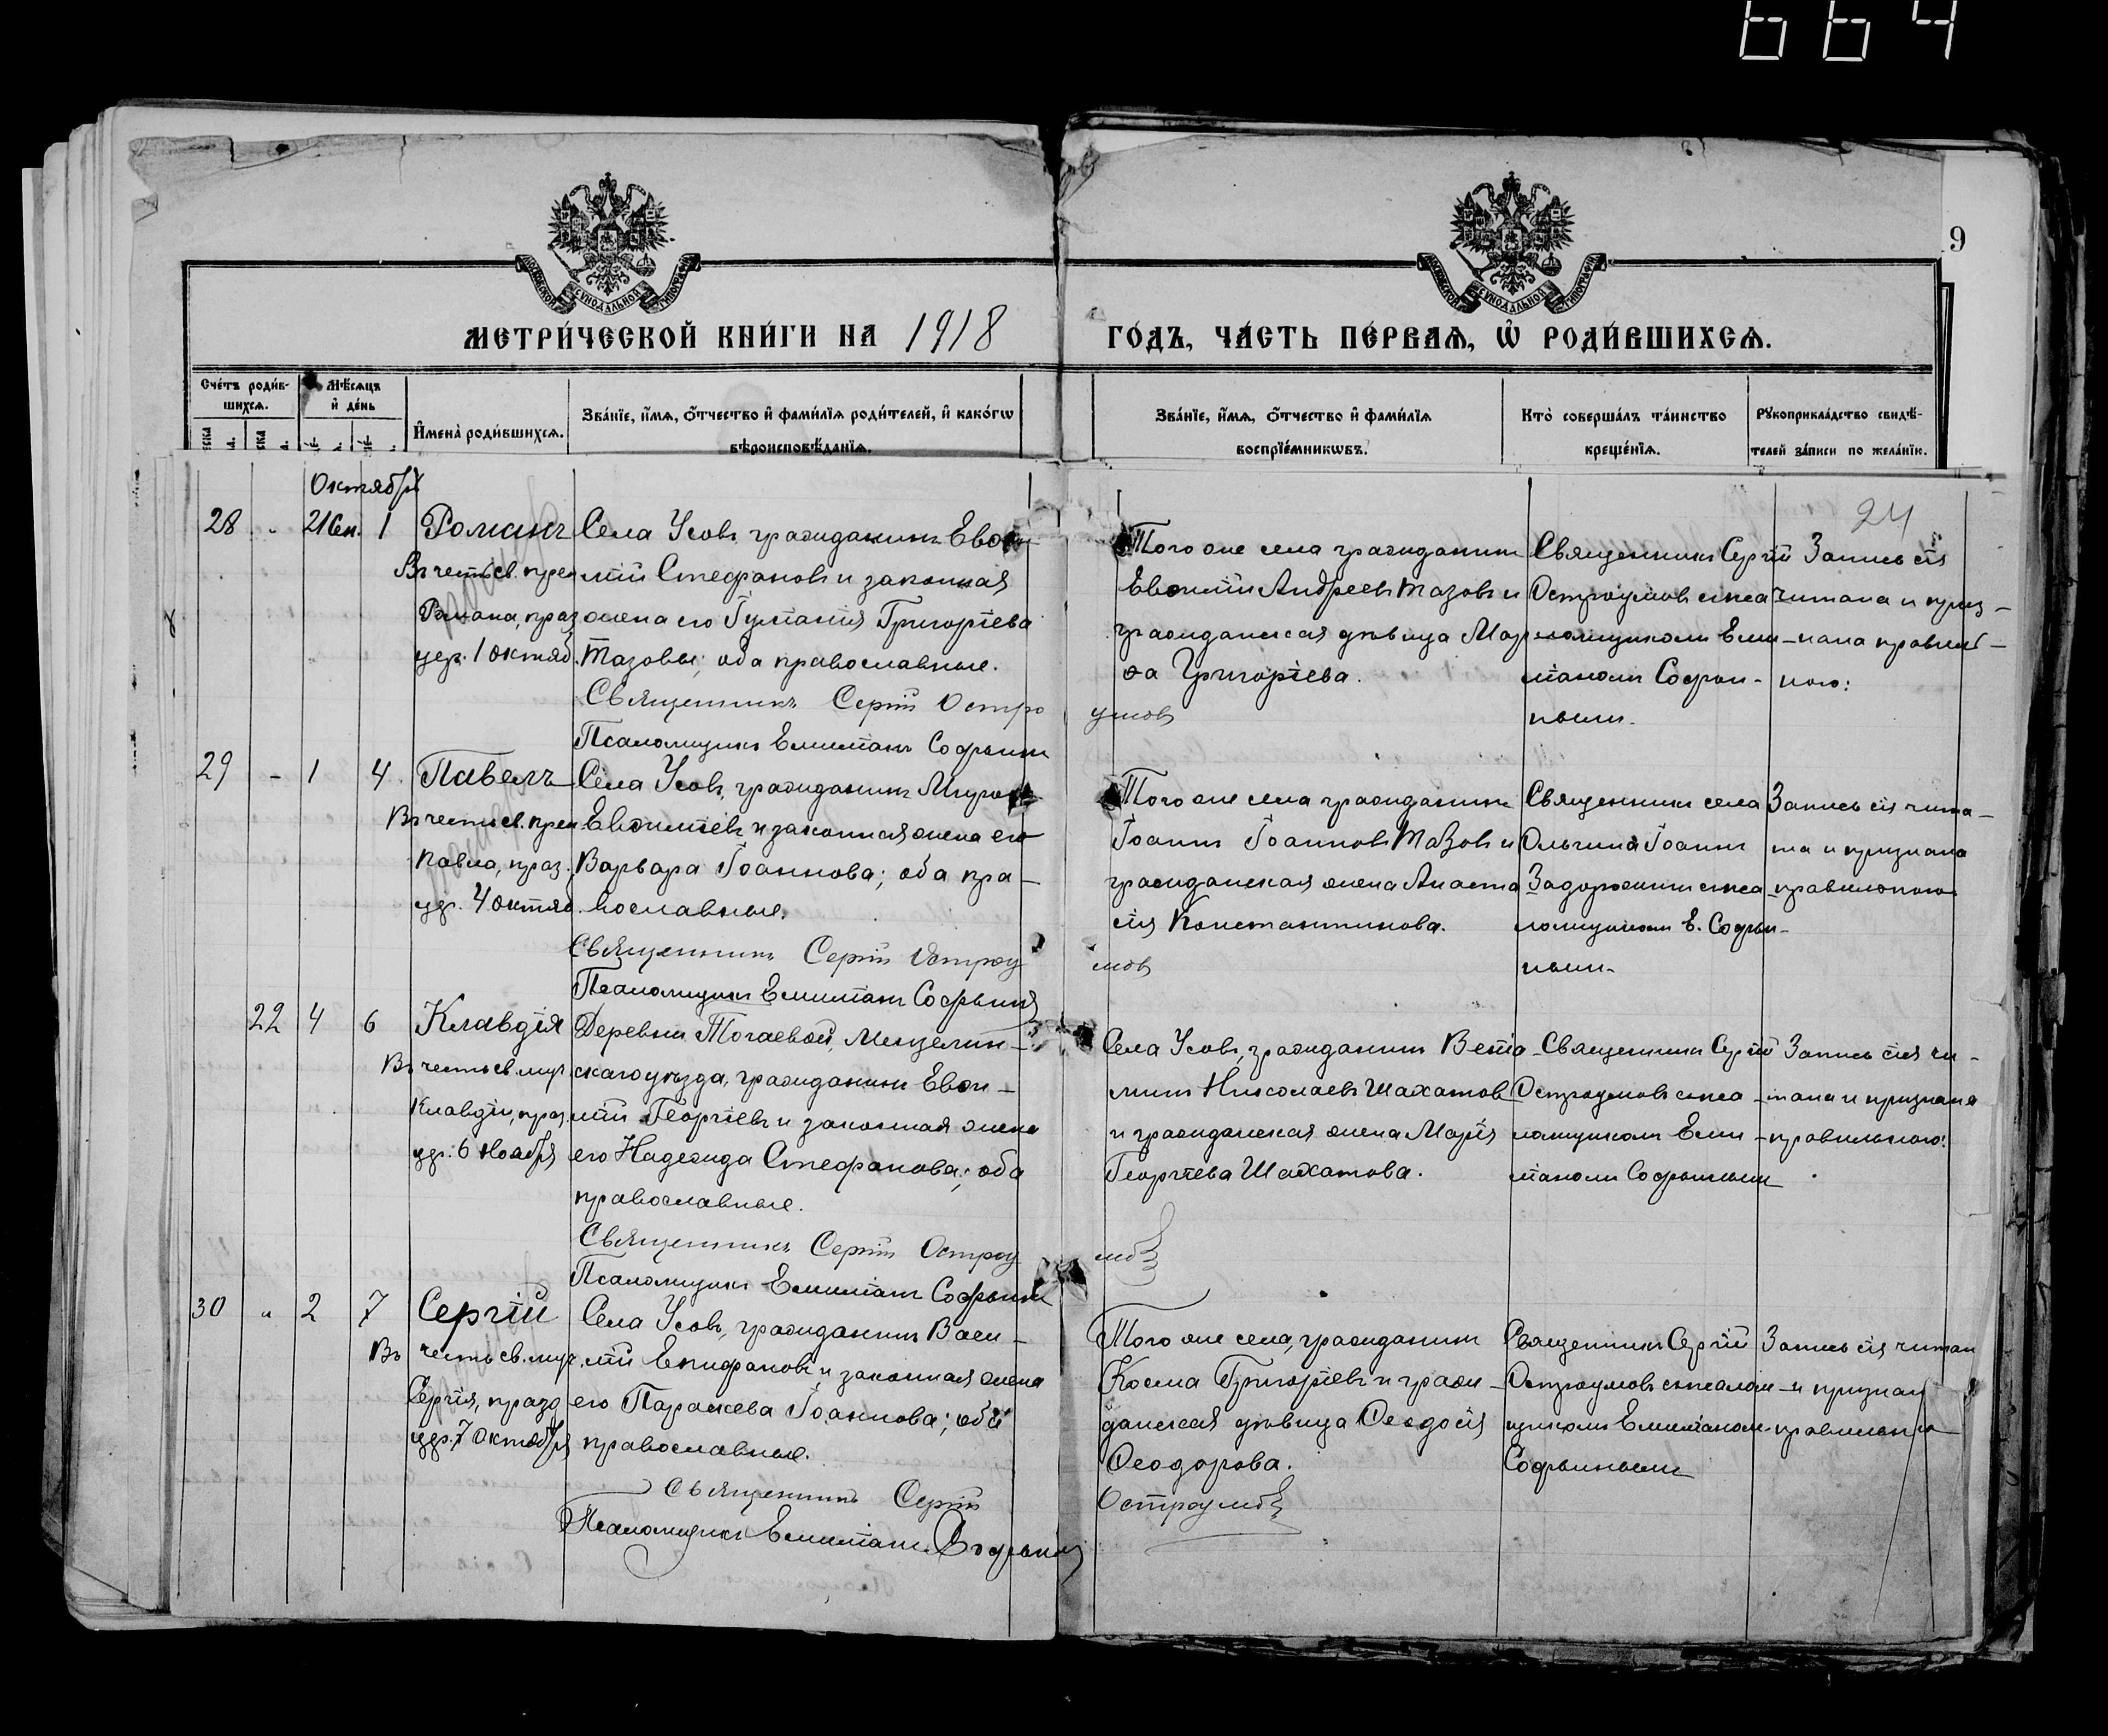 664
9
МЕТРИ́ЧЕСКОЙ КНИ́ГИ НА 1918
ГО́ДЪ, ЧА́СТЬ ПЕ́РВАѦ, Ѡ҆ РОДИ́ВШИХСѦ.
Сче́тъ роди́в-
шихсѧ.
Мѣ́сѧцъ
и҆ де́нь
И҆мена̀ роди́вшихсѧ.
Зва́нїе, и҆́мѧ, ѻ҆́тчество и҆ фами́лїѧ роди́телей, и҆ како́гѡ
вѣроисповѣ́данїѧ.
Зва́нїе, и҆́мѧ, ѻ҆́тчество и҆ фами́лїѧ
воспрїе́мникѡвъ.
Кто̀ соверша́лъ та́инство
креще́нїѧ.
Рꙋкоприкла́дство свидѣ́-
телей за́писи по жела́нїю.
Октябрь
24
28 - 21 Сен. 1 Романъ
Въ честь св. преп.
Романа, праз
уем. 1 октяб.
Села Усовъ, гражданинъ Евѳи-
мій Стефановъ и законная
жена его Григоріева
Тазовы; оба православные.
Священникъ Сергій Остро
умовъ
Псаломщикъ Емиліанъ Софьинъ
Того же села гражданинъ
Евѳимій Андреевъ Тазовъ и
гражданская дѣвица Мар
ѳа Григоріева.
Священникъ Сергій
Остроумовъ с пса
ломщикомъ Еми-
ліаномъ Софьи-
нымъ.
Запись сія
читана и приз-
нана правиль-
ною:
29 - 1 4 Павелъ
Въ честь св. преп
Павла, праз.
4 октяб.
Села Усовъ, гражданинъ Миронъ
Евѳиміевъ и законная жена его
Варвара Іоаннова; оба пра-
вославные.
Священникъ Сергій Остроу
мовъ
Псаломщикъ Емиліанъ Софьинъ
Того же села гражданинъ
Іоаннъ Іоанновъ Тазовъ и
гражданская жена Анаста
сія Константинова.
Священникъ села
Ольгина Іоаннъ
Задорожнинъ с пса
ломщикомъ Е. Софьи-
нымъ.
Запись сія чита-
на и признана
правильною
22 4 6 Клавдія
Въ честь св. муч.
Клавдіи, праз.
6 Ноября
Деревни Тогаевой, Мензелин-
скаго уѣзда, гражданинъ Евѳи-
мій Георгіевъ и законная жена
его Надежда Стефанова; оба
православные.
Священникъ Сергій Остроу
мовъ
Псаломщикъ Емиліанъ Софьинъ
Села Усовъ, гражданинъ Венiа-
минъ Николаевъ Шахатовъ
и гражданская жена Марія
Георгіева Шахатова.
Священникъ Сергій
Остроумовъ с пса-
ломщикомъ Еми-
ліаномъ Софьинымъ
Запись сія чи-
тана и признана
правильною:
30 „ 2 7 Сергій
Въ честь св. муч.
Сергія, празд
7 Октября
Села Усовъ, гражданинъ Васи-
лій Епифановъ и законная жена
его Параскева Іоаннова; оба
православные.
Священникъ Сергій
Остроумовъ
Псаломщикъ Емиліанъ Софьинъ
Того же села, гражданинъ
Косма Григоріевъ и граж-
данская дѣвица Ѳеодосія
Ѳеодорова.
Священникъ Сергій
Остроумовъ с псалом-
щикомъ Емиліаномъ
Софьинымъ
Запись сія читан
и признан
правильною